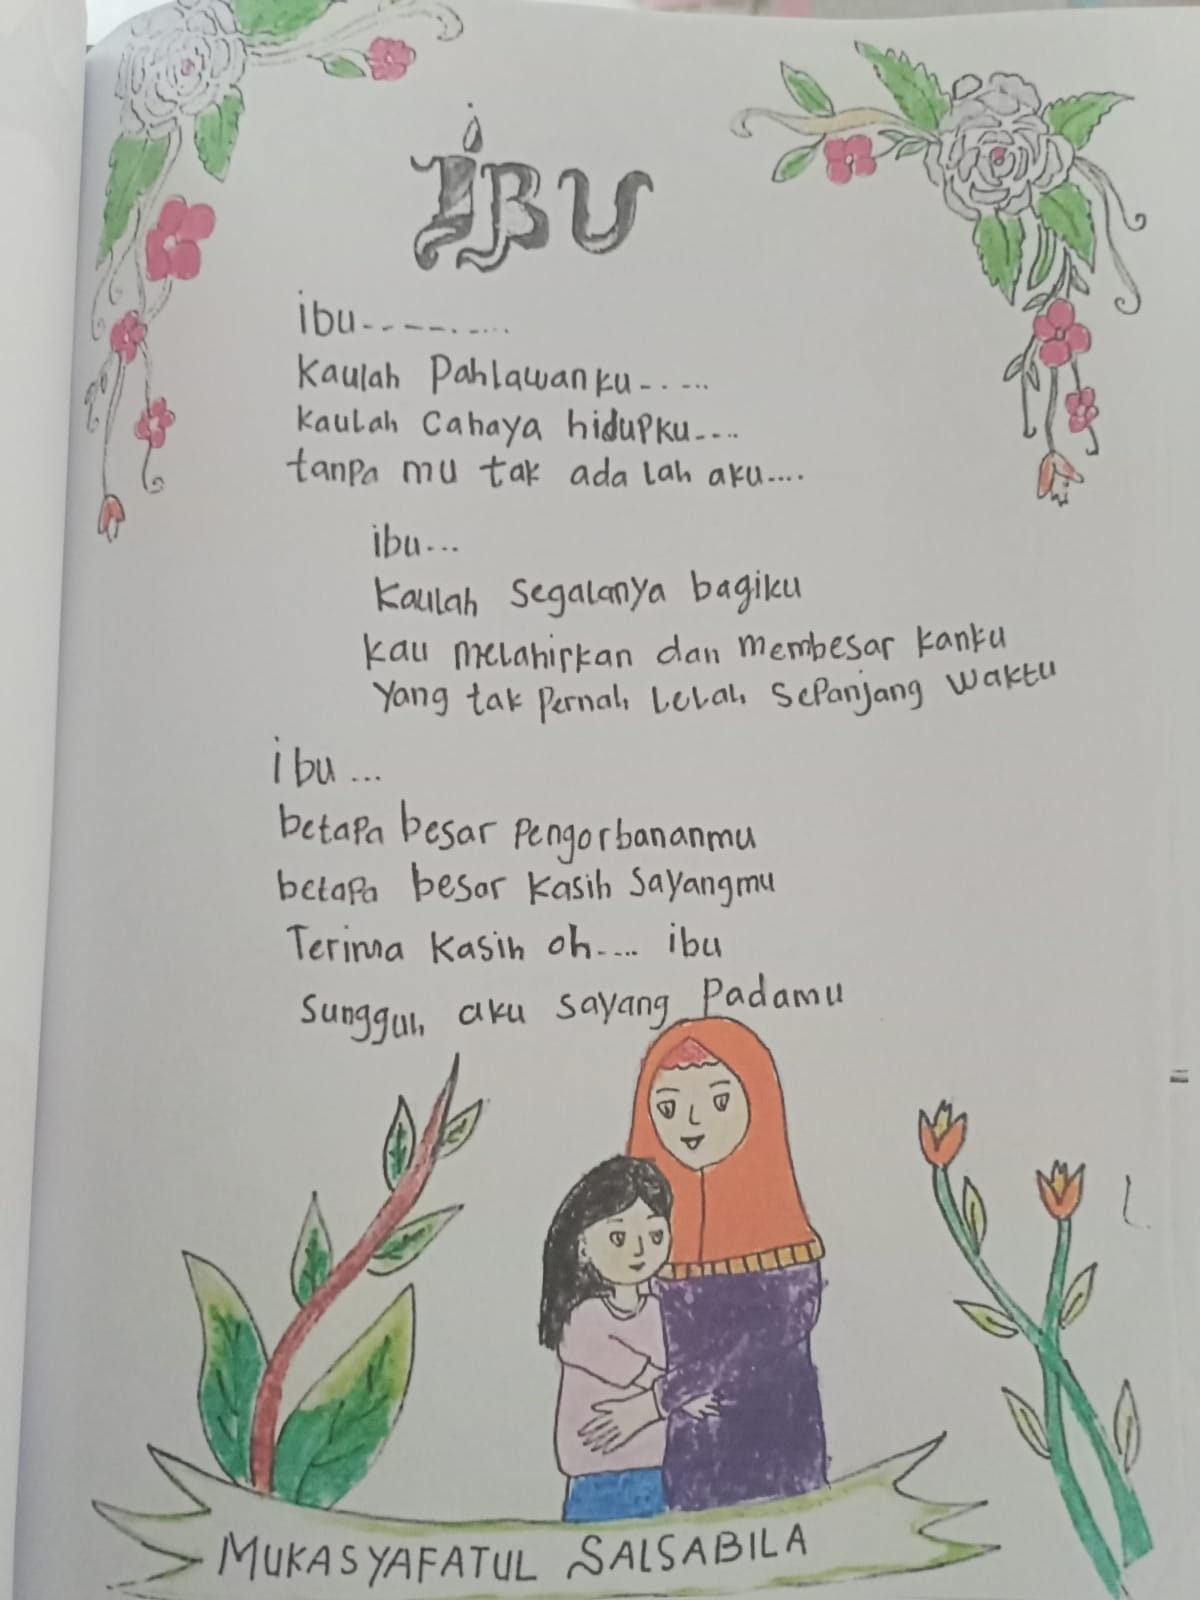 IBU
ibu-----.-...
Kaulah Pahlawanku-.-...
kaulah Cahaya hidupku-...
tanpa mu tak ada lah aku-...
ibu...
Kaulah Segalanya bagiku
kau melahirkan dan membesar kanku
Yang tak Pernah Lelah Sepanjang waktu
ibu...
betapa besar Pengorbananmu
betapa besar Kasih Sayangmu
Terima Kasih oh-... ibu
Sungguh aku Sayang Padamu
MUKASYAFATUL SALSABILA